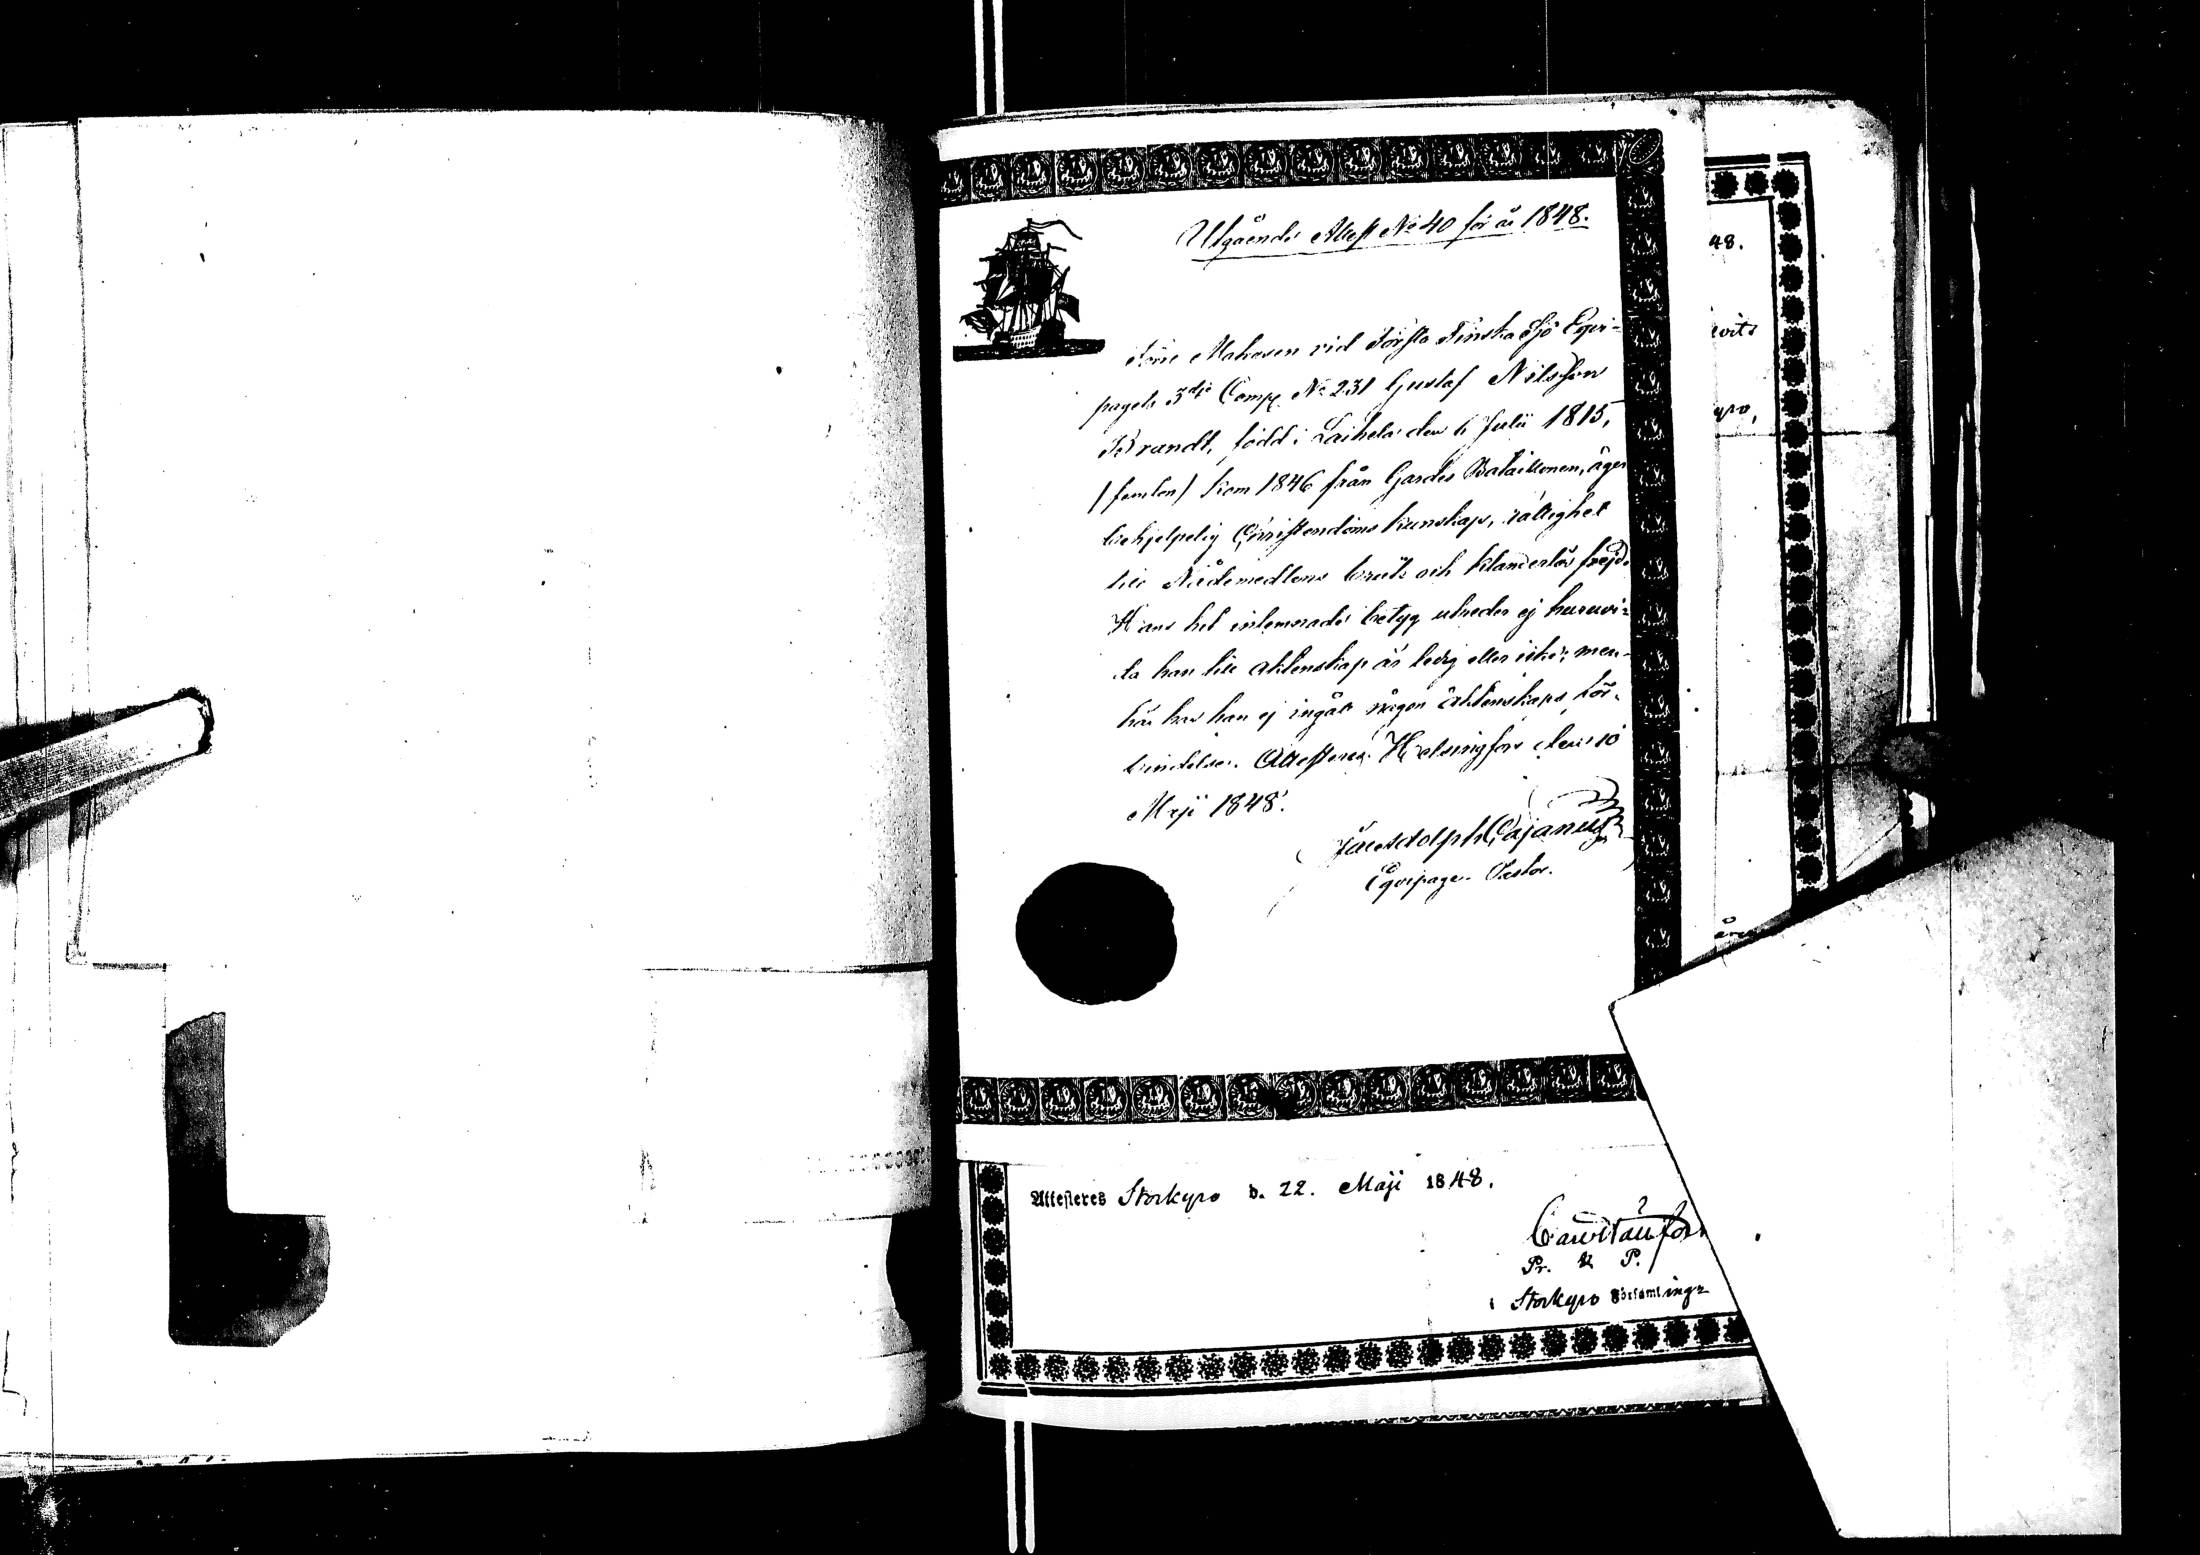 Utgående Attest No 40 för år 1848.
Förre Matrosen vid Första Finska Sjö Eqvi-
pagets 3dje Comp. No 231 Gustaf Nilsson
Brandt, född i Laihela den 6 Julii 1815,
/femton/ kom 1846 från Gardes Bataillonen, äger
behjelpelig Christendoms kunskap, rättighet
till Nådemedlens bruk och klanderlös frejd.
Hans hit inlemnade betyg utreder ej huruvi-
da han till äktenskap är ledig eller icke; men
här har han ej ingått någon äktenskaps för-
bindelse. Attesterar Helsingfors den 10
Maji 1848.
Jac Adolph Cajanus
Eqvipage-Pastor.
48.
vits
yro,
Attesteres Storkyro d. 22. Maji 1848.
Pr. & P.
i Storkyro Församlings